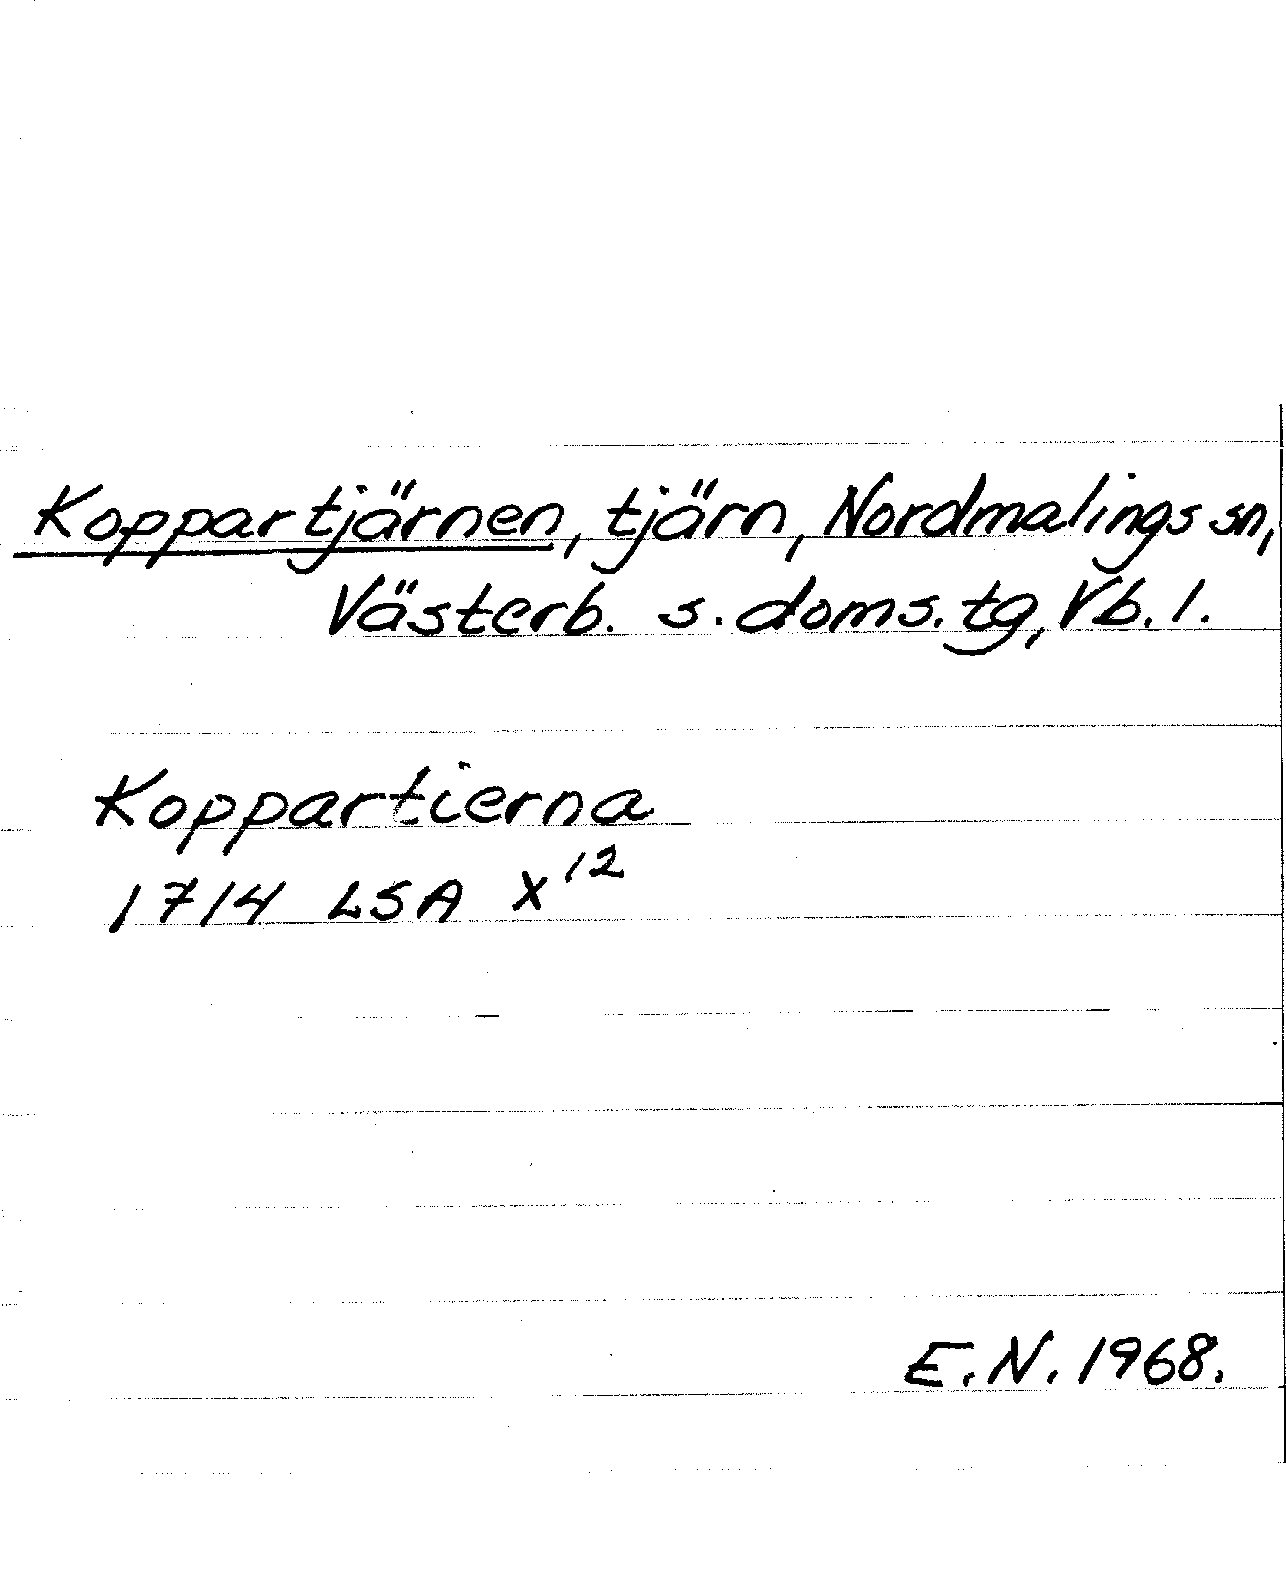 Koppartjärnen, tjärn, Nordmalings sn,
Västerb. s. doms. tg, Vb. l.
Koppartierna
1714 LSA X¹²
E.N. 1968.